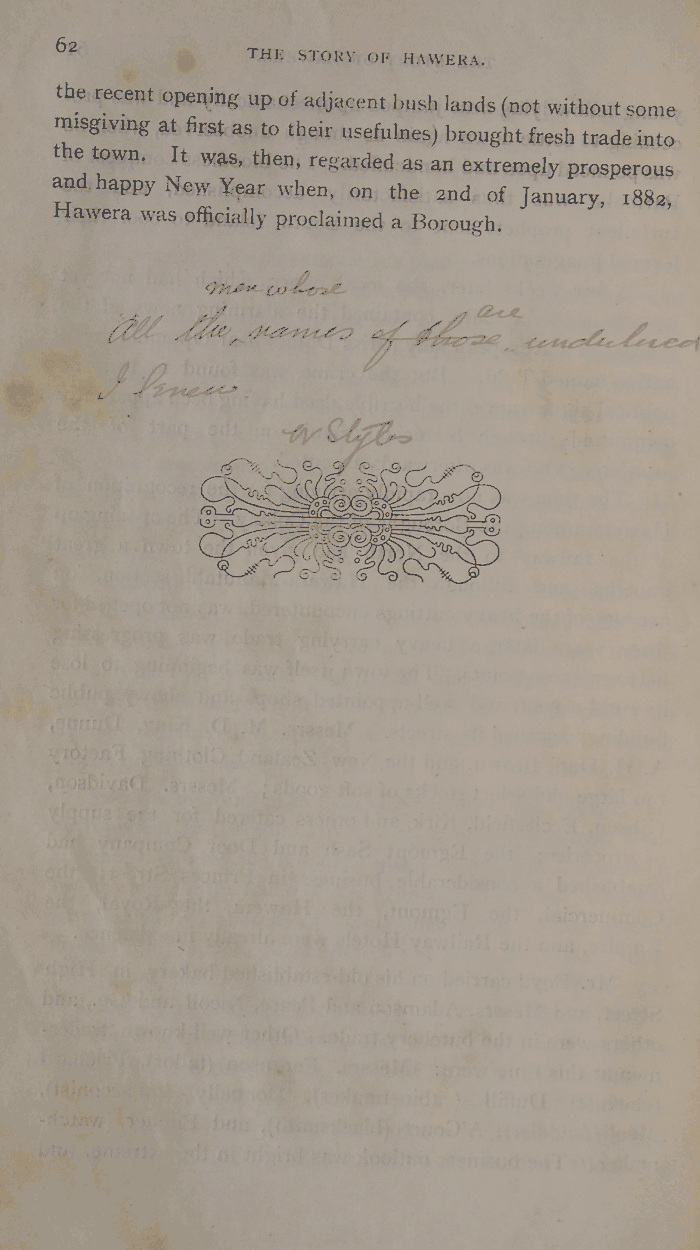 62
THE STORY OF HAWERA.
the recent opening up of adjacent bush lands (not without some
misgiving at first as to their usefulnes) brought fresh trade into
the town. It was, then, regarded as an extremely prosperous
and happy New Year when, on the 2nd of January, 1882,
Hawera was officially proclaimed a Borough.
men whose
are
All the names of those underlined
I knew
Styles